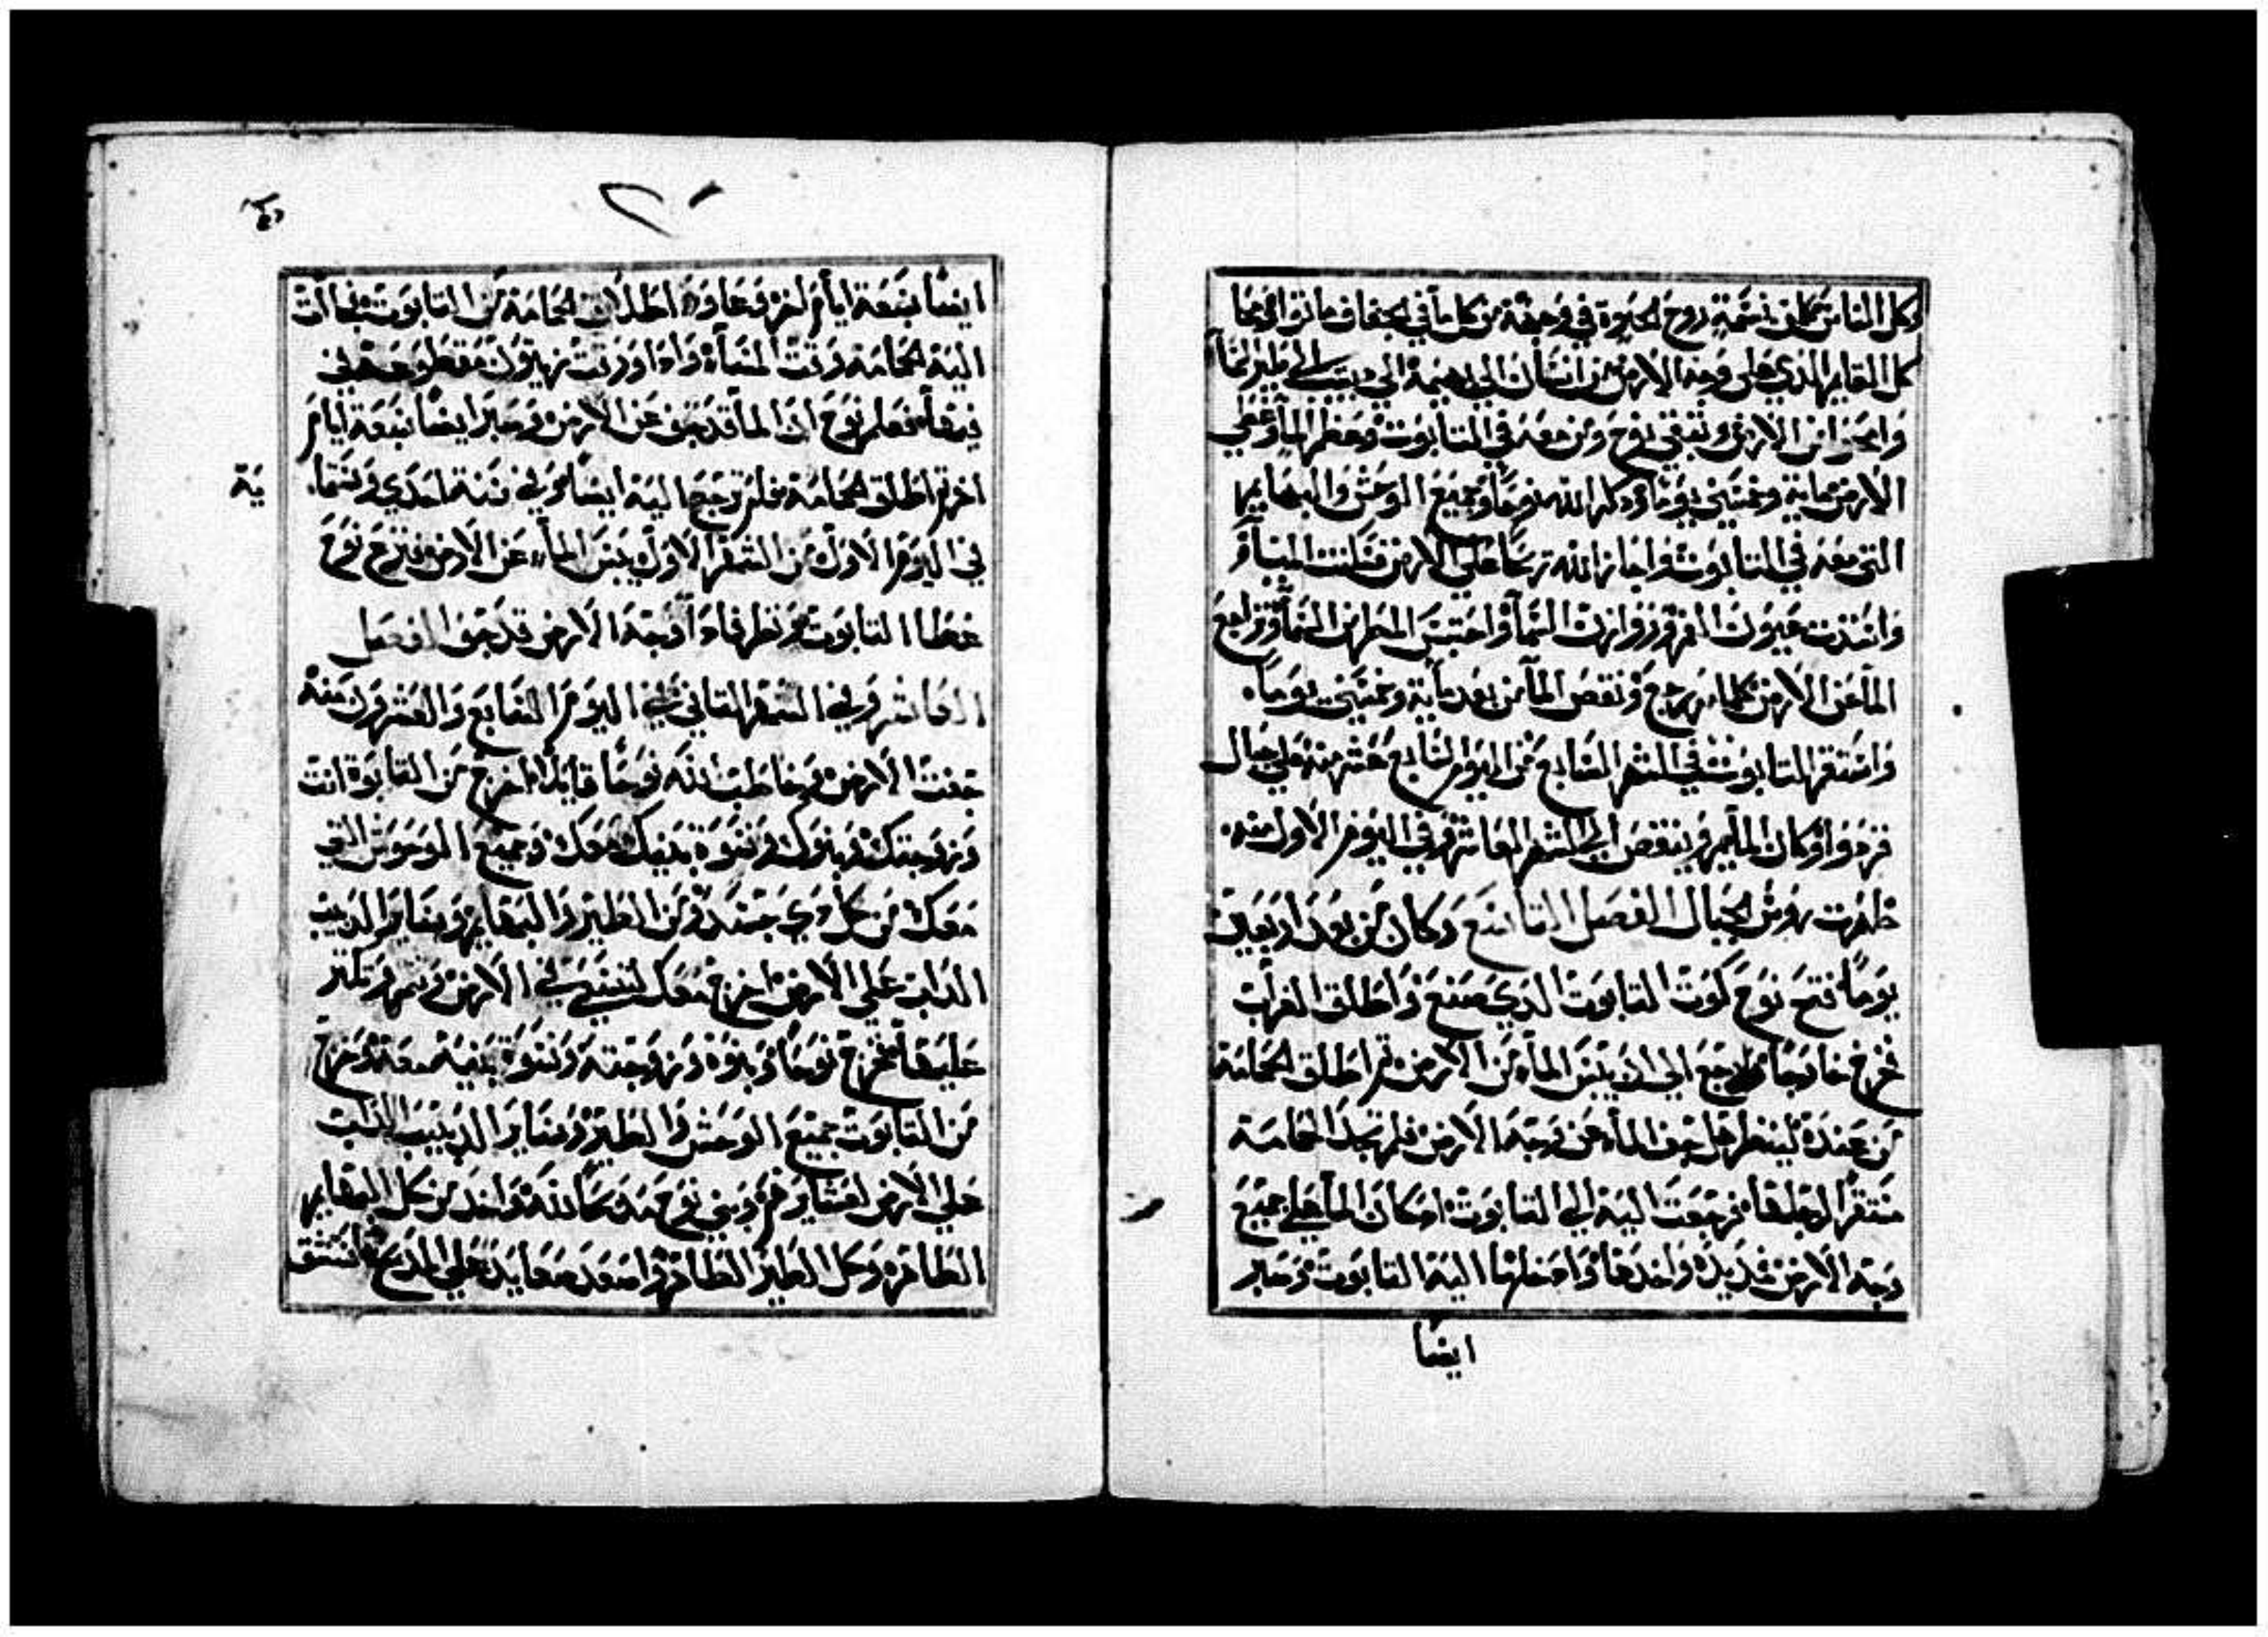 وكل الناس كلمن نسمة روح الحيوة في وجهه من كل ما في الجفاف ماتوا فمحا
كل القايم الذي على وجه الارض من انسان الى بهيمة الى دبيب الى طير السمآ
وامحوا من الارض وتبقى نوح ومن معه في التابوت وعظم المآ على
الارض ماية وخمسين يوما وذكر الله نوحا وجميع الوحش والبهايم
التى معه في التابوت واجاز الله ريحا على الارض فسكنت المياه
وانسدت عيون الغمر وروازن السمآ واحتبس المطر من السمآ وتراجع
المآ عن الارض كلما مر يرجع ونقص المآ من بعد ماية وخمسين يوما
واستقر التابوت في الشهر السابع من اليوم السابع عشر منه على جبال
قردوا وكان المآ يمر وينقص الى الشهر العاشر وفي اليوم الاول منه
ظهرت روس الجبال الفصل التاسع وكان من بعد اربعين
يوما فتح نوح كوت التابوت الذي صنع واطلق الغراب
فخرج خارجا ولم يرجع الى ان يبس المآ من الارض ثم اطلق الحمامة
من عنده لينظر هل جف المآ من وجه الارض فلم تجد الحمامة
مستقرا لرجلها فرجعت اليه الى التابوت اذ كان المآ على جميع
وجه الارض فمد يده واخدها وادخلها اليه التابوت وصبر
ايضا
ايضا سبعة ايام اخر وعاود اطلاق الحمامة من التابوت فجآت
اليه الحمامة وقت المسآ واذا ورقت زيتون مقطوعة في
فيها فعلم نوح ان المآ قد جف عن الارض وصبر ايضا سبعة ايام
اخر ثم اطلق الحمامة فلم ترجع اليه ايضا وفي سنة احدى وستما
ية
في اليوم الاول من الشهر الاول يبس المآ عن الارض فنزع نوح
غطا التابوت ونظر فاذا وجه الارض قد جف الفصل
العاشر وفي الشهر الثاني في اليوم السابع والعشرون منه
جفت الارض وخاطب الله نوحا قايلا اخرج من التابوة انت
وزوجتك وبنوك ونسوة بنيك معك وجميع الوحوش التي
معك من كل ذي جسد ومن الطير والبهايم وساير الدبيب
الداب على الارض اخرج معك لتسعى في الارض وتثمر وتكثر
عليها فخرج نوحا وبنوه وزوجته ونسوة بنيه معه وخرج
من التابوت جميع الوحش والطير وساير الدبيب الداب
على الارض لعشايرهم وبنى نوح مدبحا لله واخد من كل البهايم
الطاهره وكل الطير الطاهره واصعد صعايد على المدبح فاستنشق